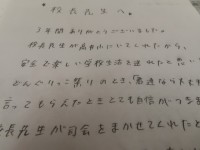 校長先生へ。
1年間ありがとうございました。
校長先生が高井小にいてくれたから、
安全で楽しい学校生活を送れたと思い
どんぐりっこ祭りのとき、「最適な人だ
言ってもらえたときとても自信がつきま
長先生が司会をまかせてくれたと